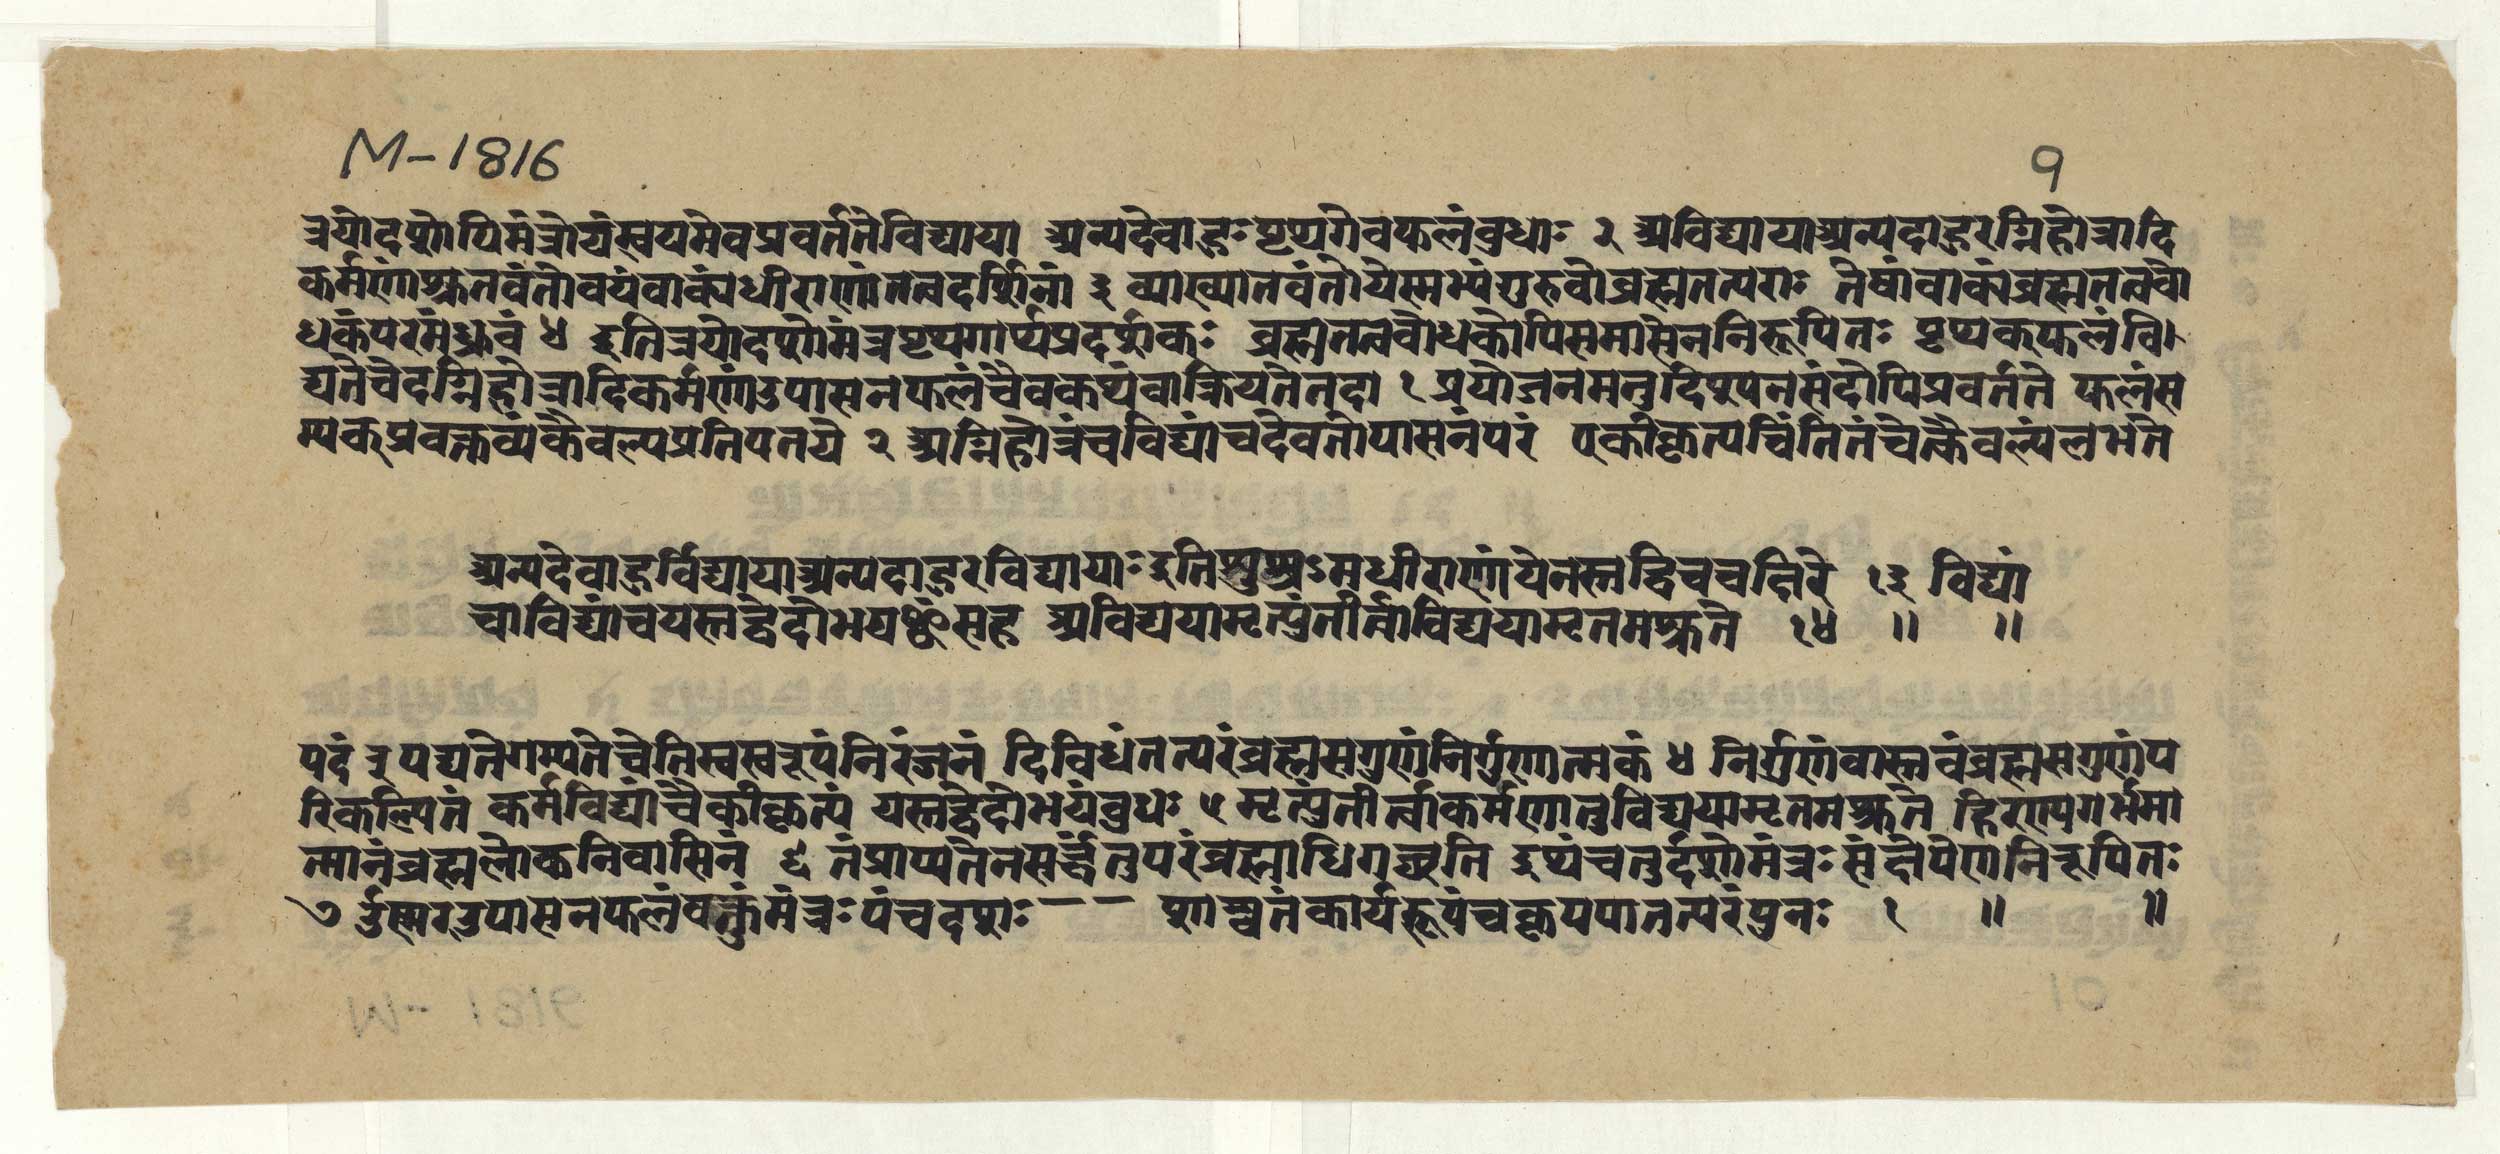 M-1816
9
त्रयोदशोपिमंत्रोयंस्वयमेवप्रवर्ततेविद्याया अन्यदेवाहुः पृथगेवफलंबुधाः २ अविद्यायाअन्यदाहुरग्निहोत्रादि
कर्मणांश्रुतवंतोवयंवाक्यंधीराणांतत्वदर्शिनां ३ व्याख्यातवंतोयेस्मभ्यंगुरुवोब्रह्मतत्पराः तेषांवाक्यंब्रह्मतत्वबो
धकंपरमंध्रुवं ४ इतित्रयोदशोमंत्रपृथगार्थप्रदर्शकः ब्रह्मतत्वबोधकोपिसमासेननिरूपितः पृथक्फलंवि
द्यतेचेदग्निहोत्रादिकर्मणांउपासनफलंचैवकथंवाक्रियतेतदा १ प्रयोजनमनुदिश्यनमंदोपिप्रवर्तते फलंस
म्यक्प्रवक्तव्यंकैवल्यप्रतिपतये २ अग्निहोत्रंचविद्यांचदेवतोपासनंपरं एकीकृत्यचिंतितंचेत्कैवल्यंलभते
अन्यदेवाहुर्विद्यायाअन्यदाहुरविद्यायाः इतिशुश्रुऽमधीराणांयेनस्तद्विचचक्षिरे १३ विद्यां
चाविद्यांचयस्तद्वेदोभयꣳसह अविद्ययामृत्युंतीर्त्वाविद्ययामृतमश्नुते १४ ॥ ॥
पदं ३ पद्यतेगम्यतेचेतिस्वस्वरूपंनिरंजनं द्विविधंतत्परंब्रह्मसगुणंनिर्गुणात्मकं ४ निर्गुणंवास्तवंब्रह्मसगुणंप
रिकल्पितं कर्मविद्यांचैकीकृत्यं यस्तद्वेदोभयंबुधः ५ मृत्युंतीर्त्वाकर्मणातुविद्ययामृतमश्नुते हिरण्यगर्भमा
त्मानंब्रह्मलोकनिवासिनं ६ तंप्राप्यतेनसर्द्धंतुपरंब्रह्माधिगच्छति इथंचतुर्दशोमंत्रः संक्षेपेणनिरूपितः
७ ईश्वरउपासनफलंवक्तुंमंत्रः पंचदशः - - शाश्वतंकार्यरूपंचकृपयातत्परंपुनः १ ॥ ॥